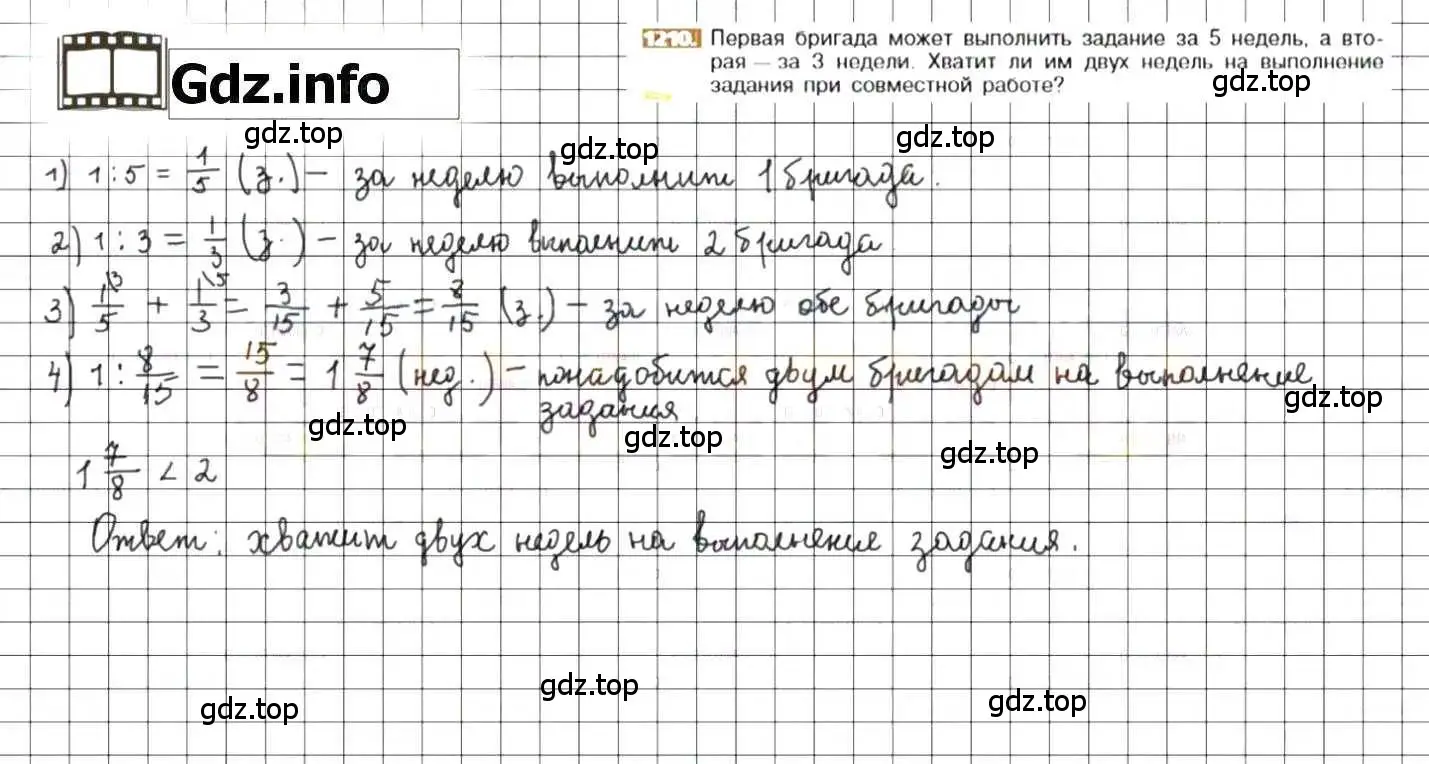 Gdz.info
1210. Первая бригада может выполнить задание за 5 недель, а вто-
рая — за 3 недели. Хватит ли им двух недель на выполнение
задания при совместной работе?
gdz.top
gdz.top
gdz.top
gdz.top
1) 1 : 5 = 1/5 (з.) – за неделю выполнит 1 бригада.
2) 1 : 3 = 1/3 (з.) – за неделю выполнит 2 бригада
3) 1\3/5 + 1\5/3 = 3/15 + 5/15 = 8/15 (з.) – за неделю обе бригады
4) 1 : 8/15 = 15/8 = 1 7/8 (нед.) – понадобится двум бригадам на выполнение
задания
gdz.top
gdz.top
gdz.top
gdz.top
1 7/8 < 2
Ответ: хватит двух недель на выполнение задания.
gdz.top
gdz.top
gdz.top